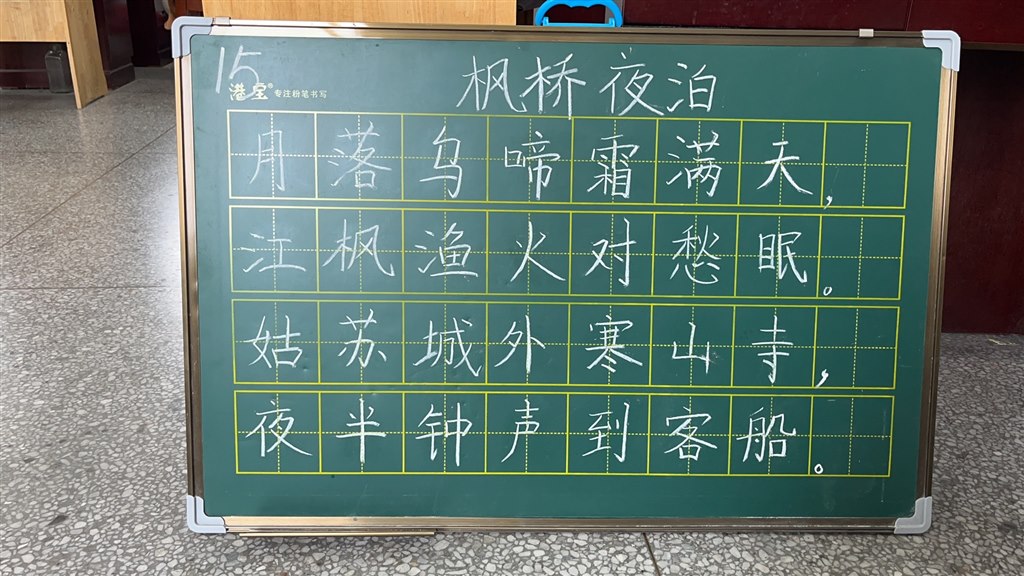 15
港宝® 专注粉笔书写
枫桥夜泊
月落乌啼霜满天,
江枫渔火对愁眠。
姑苏城外寒山寺,
夜半钟声到客船。